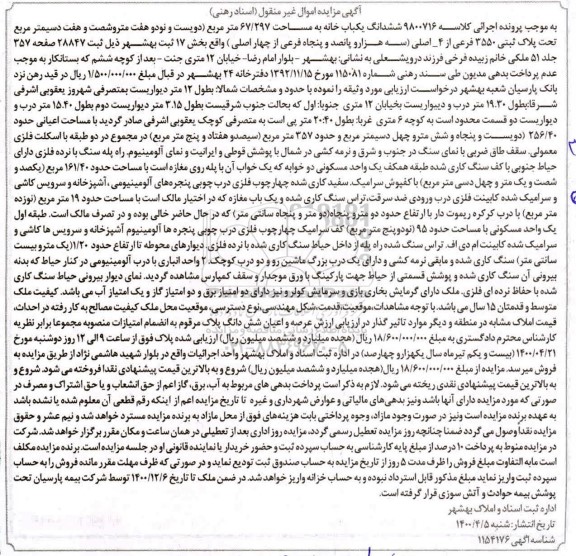 آگهی مزایده اموال غیر منقول (اسناد رهنی)
به موجب پرونده اجرائی کلاسه ۹۸۰۰۷۱۶ ششدانگ یکباب خانه به مساحت ۲۹۷/۶۷ متر مربع (دویست و نودو هفت متروشصت و هفت دسیمتر مربع
تحت پلاک ثبتی ۳۵۵۰ فرعی از ۴_ اصلی (سه هزارو پانصد و پنجاه فرعی از چهار اصلی) واقع بخش ۱۷ ثبت بهشهر ذیل ثبت ۲۸۸۴۷ صفحه ۳۵۷
جلد ۵۱ ملکی خانم زبیده فرخی فرزند درویشعلی به نشانی: بهشهر - بلوار امام رضا- خیابان ۱۲ متری جنت - بعد از کوچه ششم که بستانکار به موجب
عدم پرداخت بدهی مدیون طی سند رهنی شماره ۱۱۵۰۸۱ مورخ ۱۳۹۲/۱۱/۱۵ دفترخانه ۲۴ بهشهر در قبال مبلغ ۱/۵۰۰/۰۰۰/۰۰۰ ریال در قید رهن نزد
بانک پارسیان شعبه بهشهر درخواست ارزیابی مورد وثیقه را نموده با حدود و مشخصات شمالا: بطول ۱۲ متر دیواریست بمتصرفی شهروز یعقوبی اشرفی
شرقا بطول ۱۹.۳۰ متر درب و دیواریست بخیابان ۱۲ متری جنوبا: اول که بحالت جنوب شرقیست بطول ۳.۱۵ متر دیواریست دوم بطول ۱۵.۴۰ متر درب و
دیواریست دو قسمت محدود است به کوچه ۶ متری غربا: بطول ۲۰.۴۰ متر پی است به متصرفی کوچک یعقوبی اشرفی صادر گردید با مساحت اعیانی حدود
۲۵۶/۴۰ (دویست و پنجاه و شش مترو چهل دسیمتر مربع و حدود ۳۵۷ متر مربع (سیصدو هفتاد و پنج متر مربع) در مجموع در دو طبقه با اسکلت فلزی
معمولی، سقف طاق ضربی با نمای سنگ در جنوب و شرق و نرمه کشی در شمال با پوشش قوطی و ایرانیت و نمای آلومینیوم، راه پله سنگ با نرده فلزی دارای
حیاط جنوبی با کف سنگ کاری شده طبقه همکف یک واحد مسکونی دو خوابه که یک خواب آن با پله روی مغازه است با مساحت حدود ۱۶۱/۴۰ مربع (یکصد و
شصت و یک متر و چهل دسی متر مربع) با کفپوش سرامیک، سفید کاری شده چهارچوب فلزی درب چوبی پنجره‌های آلومینیومی، آشپزخانه و سرویس کاشی
و سرامیک شده کابینت فلزی درب ورودی ضد سرقت، تراس سنگ کاری شده و یک باب مغازه که در اختیار مالک است با مساحت حدود ۱۹ متر مربع (نوزده
متر مربع) با درب کرکره ریموت دار با ارتفاع حدود دو متر و پنجاه (دو متر و پنجاه سانتی متر) که در حال حاضر خالی بوده و در تصرف مالک است. طبقه اول
یک واحد مسکونی با مساحت حدود ۹۵ (نودوپنج متر مربع) کف سرامیک چهارچوب فلزی درب چوبی پنجره ها آلومینیوم آشپزخانه و سرویس ها کاشی و
سرامیک شده کابینت ام دی اف، تراس سنگ شده راه پله از داخل حیاط سنگ کاری شده با نرده فلزی، دیوارهای محوطه تا ارتفاع حدود ۱/۲۰ (یک مترو بیست
سانتی متر) سنگ کاری شده و مابقی نرمه کشی و دارای یک درب بزرگ ماشین رو و دو درب کوچک، ۲ واحد انباری با درب آلومینیومی در کنار حیاط که بدنه
بیرونی آن سنگ کاری شده و پوشش قسمتی از حیاط جهت پارکینگ با ورق موجدار و سقف کمپارس مشاهده گردید. نمای دیوار بیرونی حیاط سنگ کاری
شده با حفاظ نرده ای فلزی، ملک دارای گرمایش بخاری گازی و سرمایش کولر و نیز دارای دو امتیاز برق و دو امتیاز گاز و یک امتیاز آب می باشد. کیفیت ملک
متوسط و قدمتان ۱۵ سال می باشد. با توجه مشاهدات، موقعیت، قدمت، شکل مهندسی، نوع دسترسی، موقعیت محل ملک کیفیت مصالح به کار رفته در احداث،
قیمت املاک مشابه در منطقه و دیگر موارد تاثیر گذار در ارزیابی ارزش عرصه و اعیان شش دانگ پلاک مرقوم به انضمام امتیازات منصوبه مجموعا برابر نظریه
کارشناس محترم دادگستری به مبلغ ۱۸/۶۰۰/۰۰۰/۰۰۰ ریال (هجده میلیارد و ششصد میلیون ریال) ارزیابی شده پلاک فوق از ساعت ۹ الی ۱۲ روز دوشنبه مورخ
۱۴۰۰/۰۴/۲۱ (بیست و یکم تیرماه سال یکهزارو چهارصد) در اداره ثبت اسناد و املاک بهشهر واحد اجرائیات واقع در بلوار شهید هاشمی نژاد از طریق مزایده به
فروش میرسد. مزایده از مبلغ ۱۸/۶۰۰/۰۰۰/۰۰۰ ریال (هجده میلیارد و ششصد میلیون ریال) شروع و به بالاترین قیمت پیشنهادی نقدا فروخته می شود. شروع و
به بالاترین قیمت پیشنهادی نقدی ریخته می شود. لازم به ذکر است پرداخت بدهی های مربوط به آب، برق، گاز اعم از حق انشعاب و یا حق اشتراک و مصرف در
صورتی که مورد مزایده دارای آنها باشد ونیز بدهی‌های مالیاتی و عوارض شهرداری و غیره تا تاریخ مزایده اعم از اینکه رقم قطعی آن معلوم شده یا نشده باشد
به عهده برنده مزایده است ونیز در صورت وجود مازاد، وجوه پرداختی بابت هزینه‌های فوق از محل مازاد به برنده مزایده مسترد خواهد شد و نیم عشر و حقوق
مزایده نقدا وصول می گردد ضمنا چنانچه روز مزایده تعطیل رسمی گردد، مزایده روز اداری بعد از تعطیلی در همان ساعت و مکان مقرر برگزار خواهد شد. شرکت
در مزایده منوط به پرداخت ۱۰ درصد از مبلغ پایه کارشناسی به حساب سپرده ثبت و حضور خریدار یا نماینده قانونی او در جلسه مزایده است. برنده مزایده مکلف
است مابه التفاوت مبلغ فروش را ظرف مدت ۵ روز از تاریخ مزایده به حساب صندوق ثبت تودیع نماید و در صورتی که ظرف مهلت مقرر مانده فروش را به حساب
سپرده ثبت واریز نماید مبلغ مذکور قابل استرداد نبوده و به حساب خزانه واریز خواهدشد. در ضمن ملک تا تاریخ ۱۴۰۰/۱۲/۶ توسط شرکت بیمه پارسیان تحت
پوشش بیمه حوادث و آتش سوزی قرار گرفته است.
اداره ثبت اسناد و املاک بهشهر
تاریخ انتشار: شنبه ۱۴۰۰/۴/۵
شناسه آگهی ۱۱۵۴۱۷۶